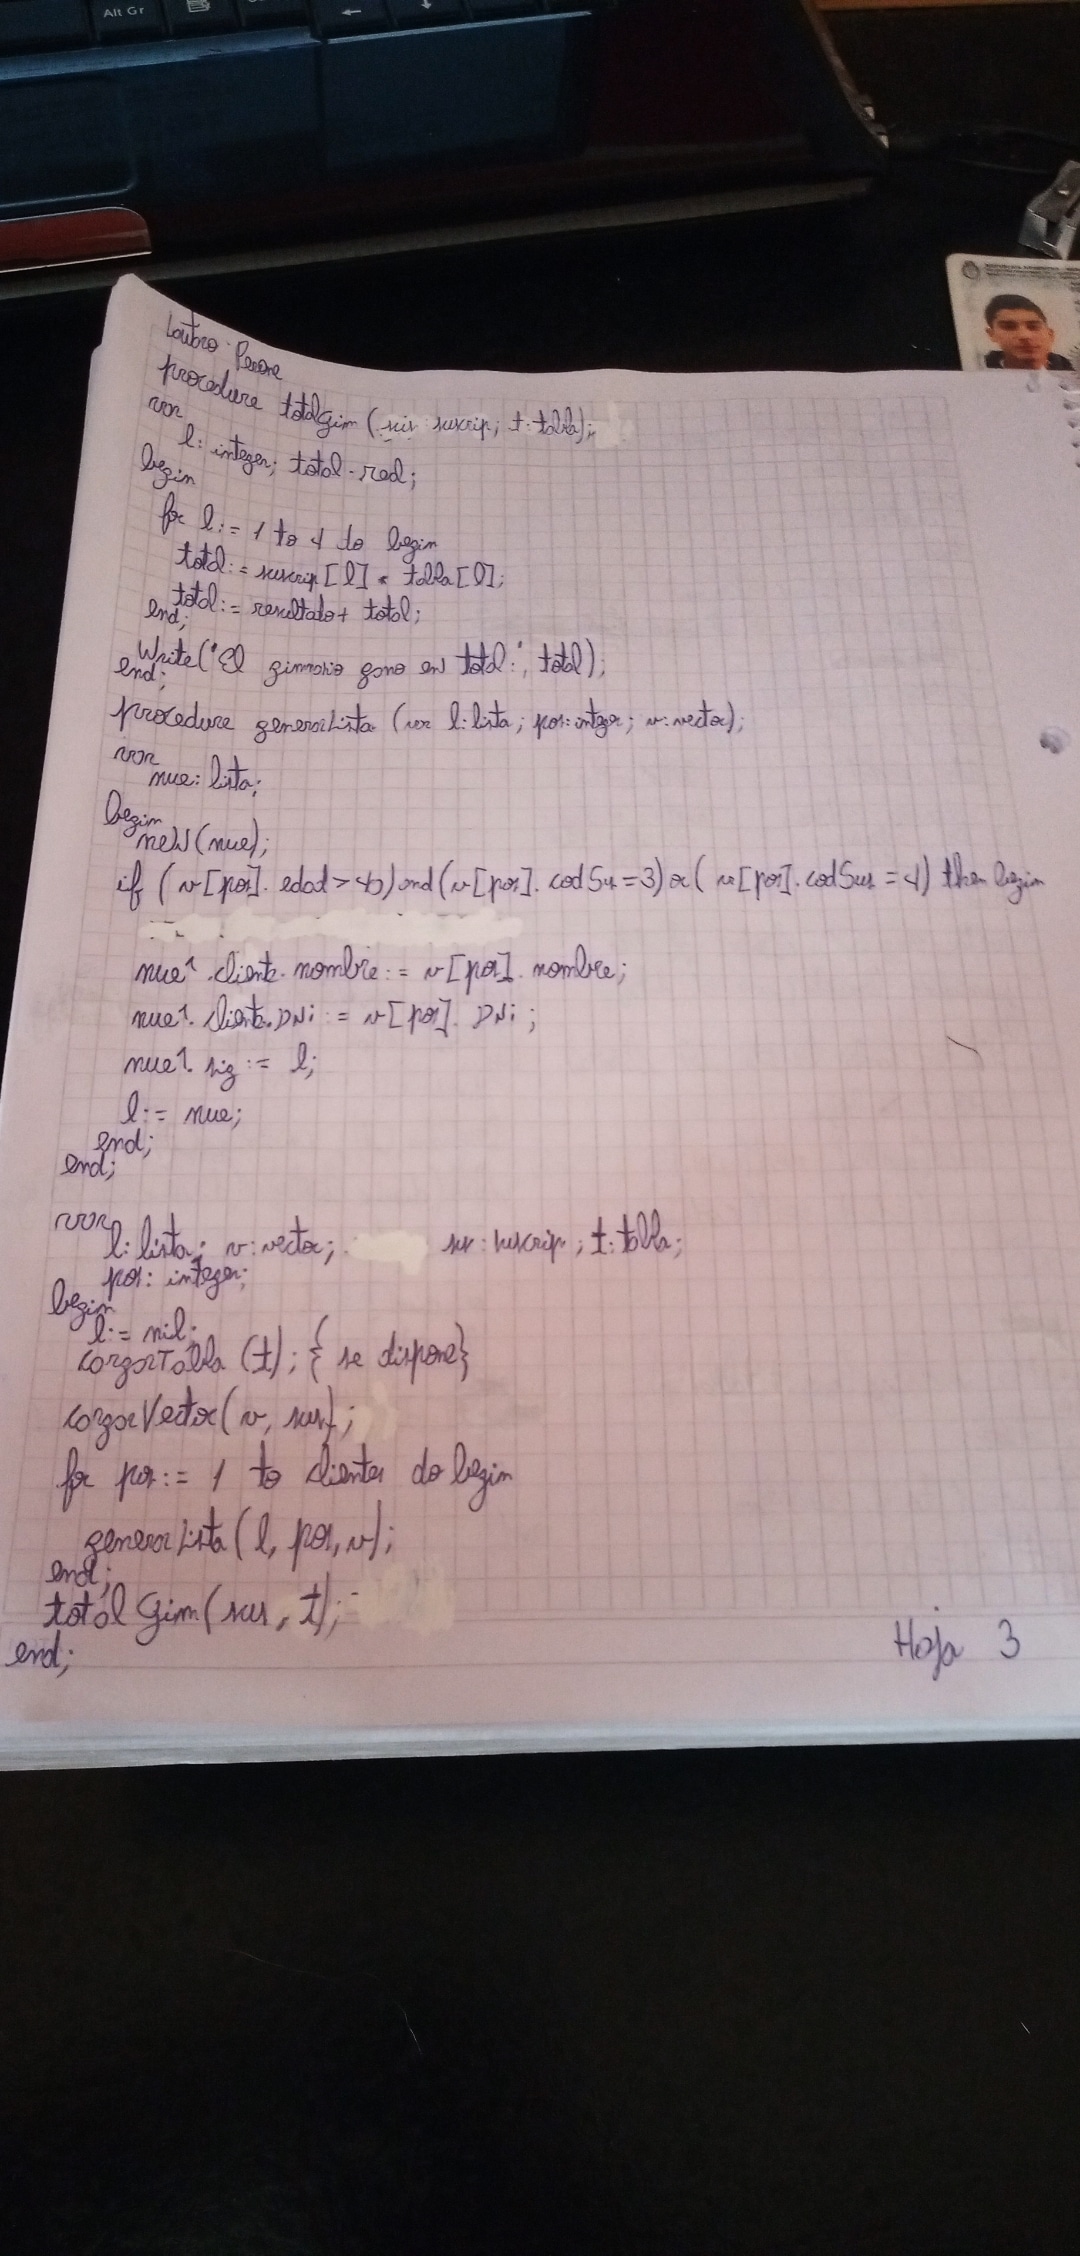 Alt Gr
Lautaro Perone
procedure totalGim (sus: suscrip; t: tabla);
var
l: integer; total: real;
begin
for l:= 1 to 4 to begin
total:= suscrip[l] * tabla[l];
total:= resultado + total;
end;
Write('El gimnasio gano en total:', total);
end;
procedure generarLista (var l: lista; pos: integer; v: vector);
var
nue: lista;
begin
new(nue);
if (v[pos].edad > 40) and (v[pos].codSus = 3) or (v[pos].codSus = 4) then begin
nue^.cliente.nombre := v[pos].nombre;
nue^.cliente.DNi := v[pos].DNi;
nue^.sig := l;
l:= nue;
end;
end;
var
l: lista; v: vector; sus: suscrip; t: tabla;
pos: integer;
begin
l:= nil;
cargarTabla (t); {se dispone}
cargarVector(v, sus);
for pos:= 1 to clientes do begin
generarLista(l, pos, v);
end;
totalGim(sus, t);
end;
Hoja 3